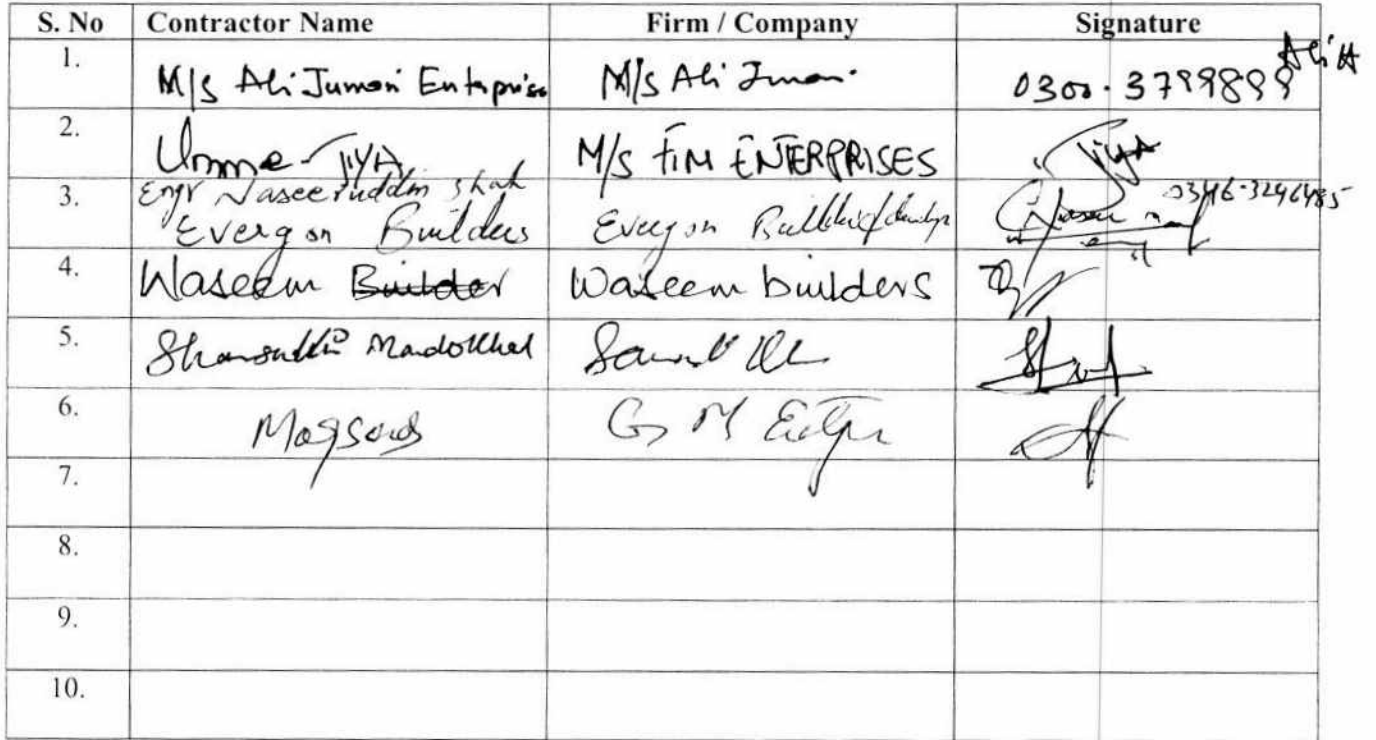 S. No Contractor Name Firm / Company Signature
1. M/s Ali Jumon Enterprise M/s Ali Juman. 0300-3799899 Ali A
2. Umme-Jiya M/S FIM ENTERPRISES Jiya
3. Engr Naseeruddin Shah 03416-3246485
Evergon Builders Evergon
4. Waseem Builder Waseem builders
5. Mandokhel
6. Maqsood G M
7.
8.
9.
10.